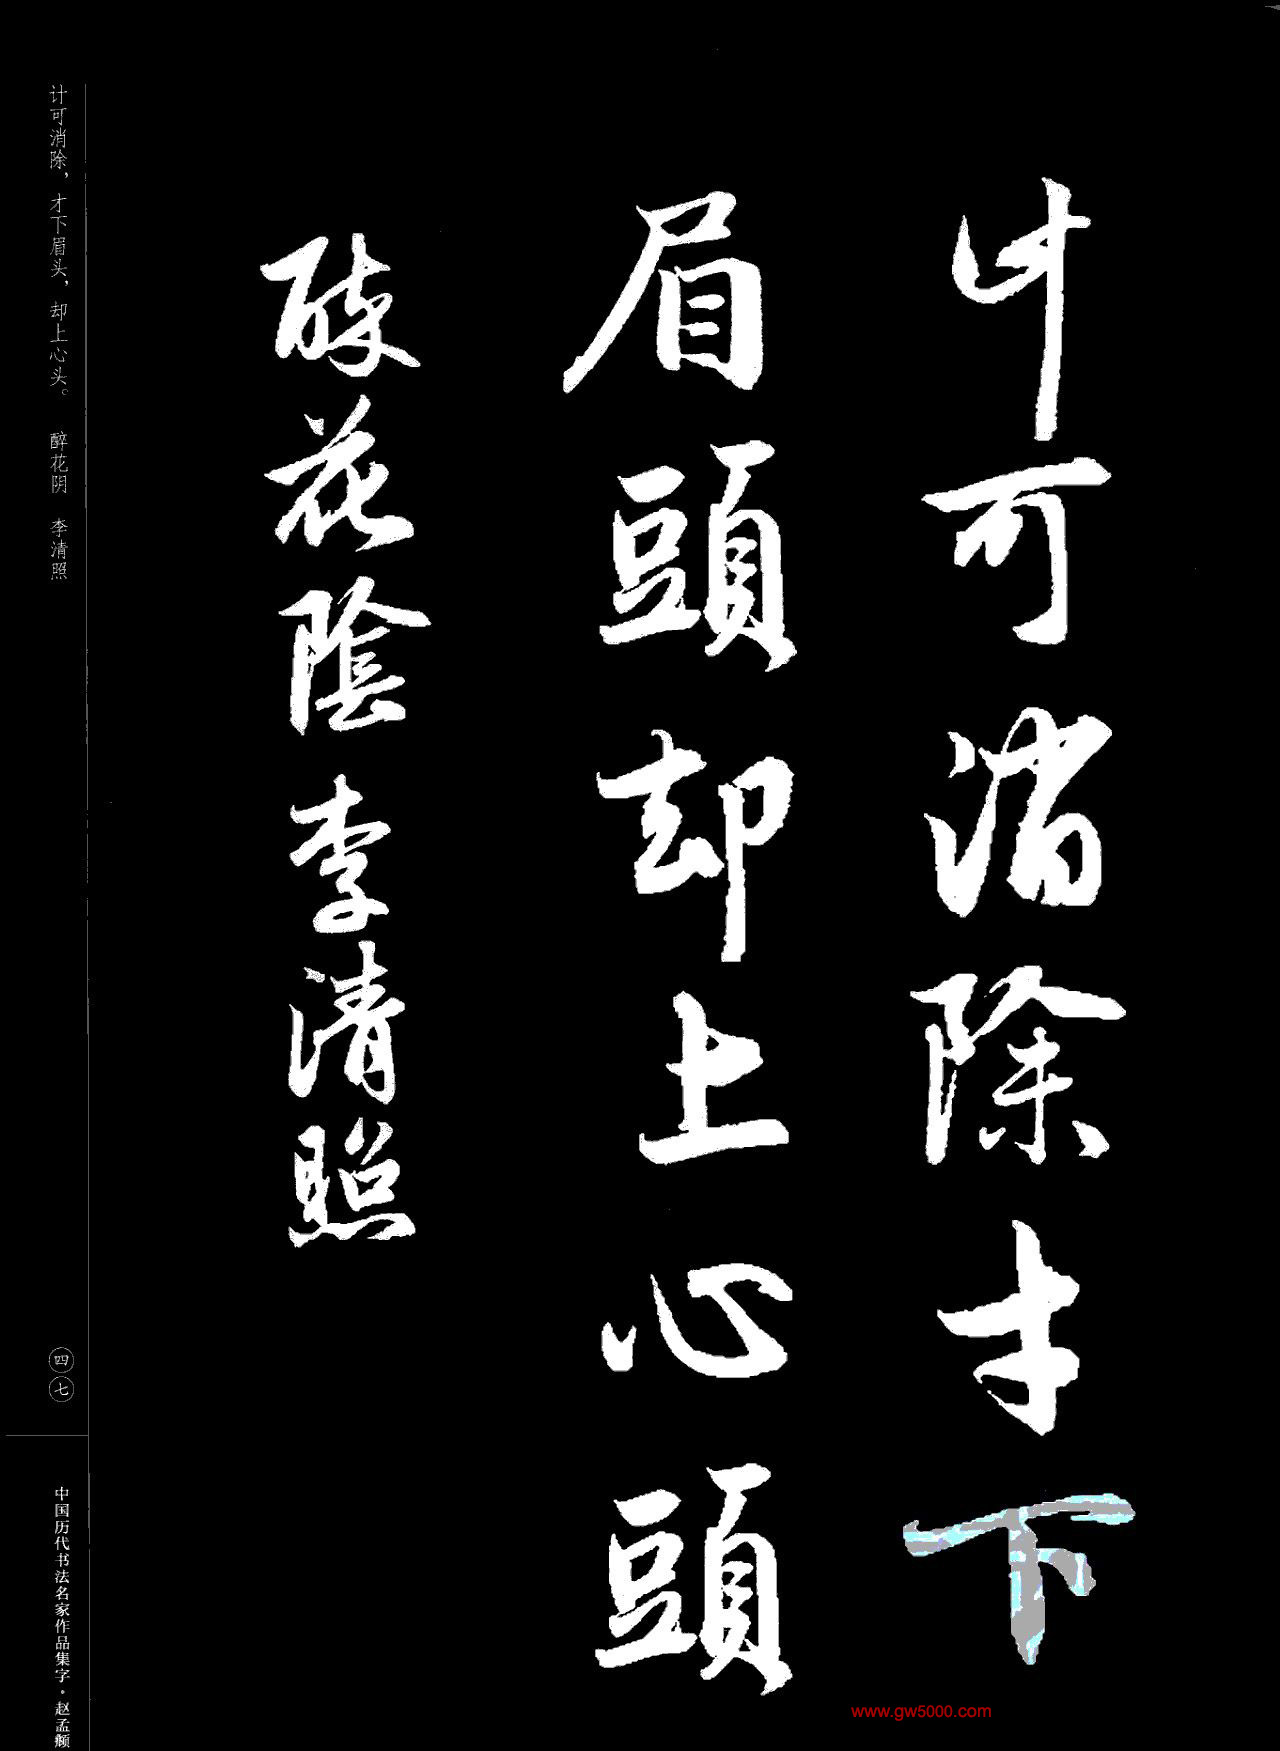 计可消除才下
眉頭却上心頭
醉花陰李清照
计可消除，才下眉头，却上心头。 醉花阴 李清照
四七
中国历代书法名家作品集字·赵孟頫
www.gw5000.com